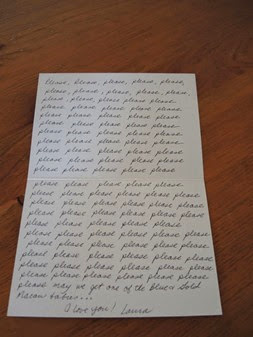 Please, please, please, please, please,
please, please, please, please, please,
please, please, please please please
please please please please please
please please please please please
please please please please please
please please please please please
please please please please please
please please please please please
please please please please please
please please please please please
please please please please please
please please please please please please
please please please please please please
please please please please please please
please please please please please please
please please please please please please
please please please please please please
please please please please please please
please please please please please please
please please please please please please
please may we get one of the blue & Gold
Macaw babies...
I love you! Laura